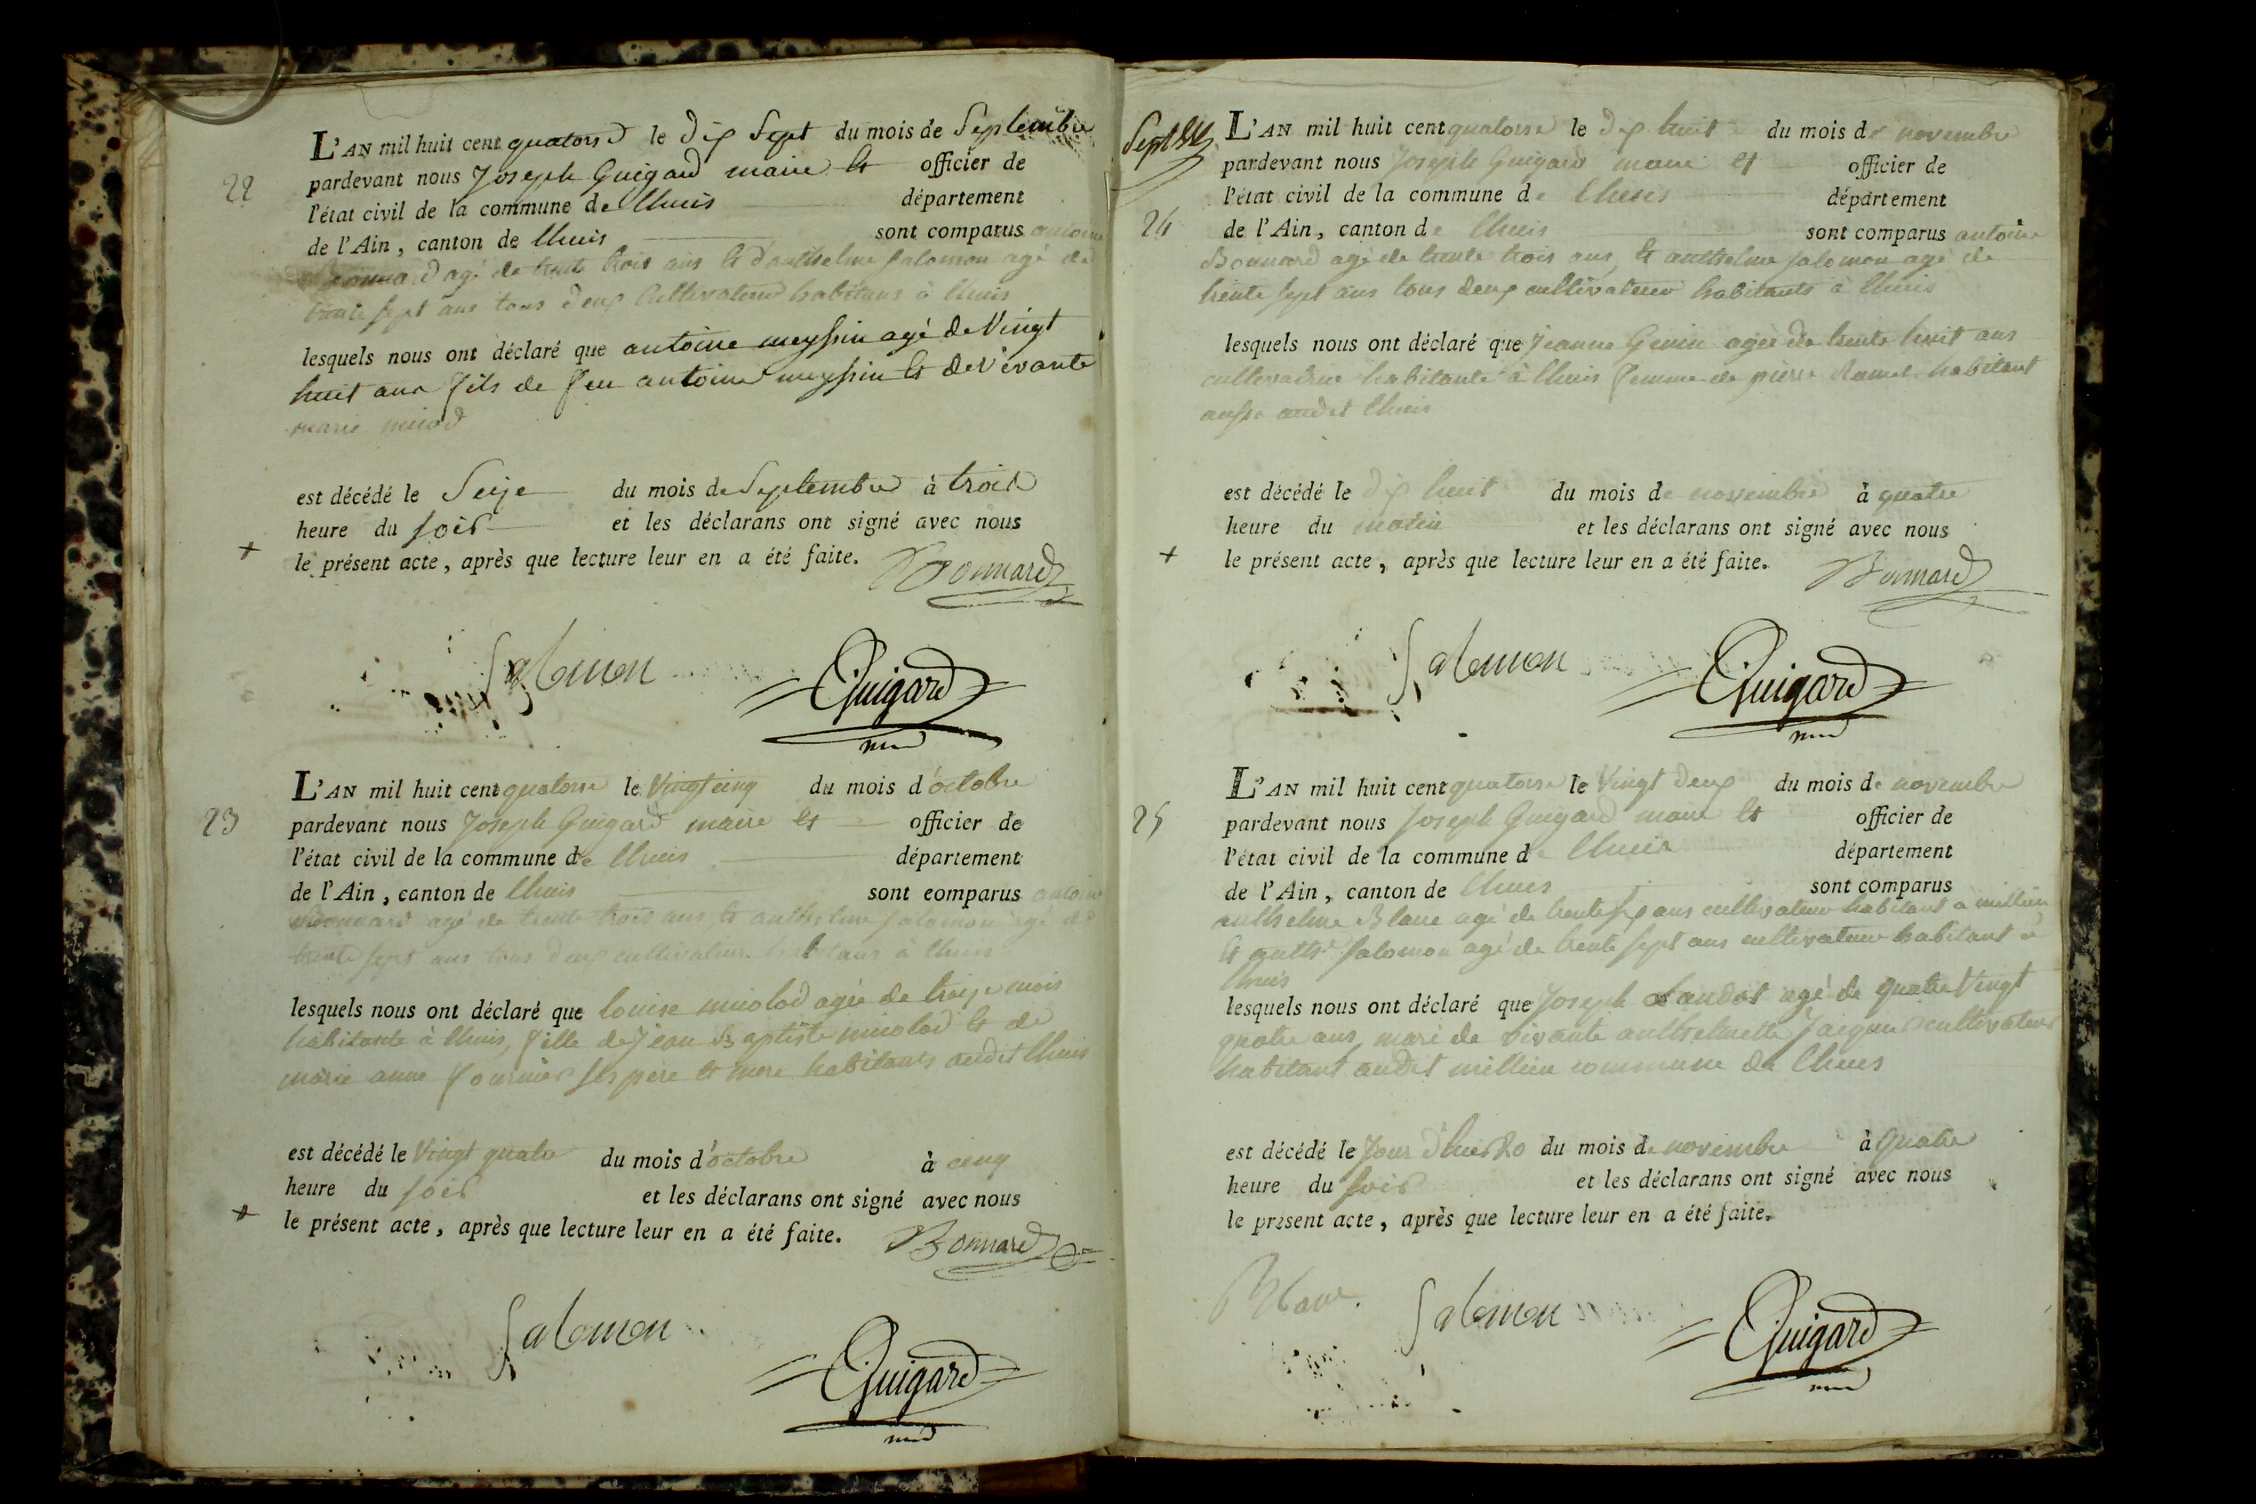 22
L'AN mil huit cent quatorse le dix Sept du mois de Septembre
pardevant nous Joseph Guigard maire et officier de
l'état civil de la commune de lhuis département
de l'Ain, canton de lhuis sont comparus antoine
Bonnard agé de trente trois ans et d'anthelme Salomon agé de
trente sept ans tous deux Cultivateurs habitans à lhuis
lesquels nous ont déclaré que antoine meyssin agé de Vingt
huit ans fils de feu antoine meyssin et de vivante
marie
est décédé le Seize du mois de Septembre à trois
heure du soir et les déclarans ont signé avec nous
le présent acte, après que lecture leur en a été faite.
Bonnard
Salomon
Guigard
23
L'AN mil huit cent quatorse le Vingt cinq du mois d'octobre
pardevant nous Joseph Guigard maire et officier de
l'état civil de la commune de lhuis département
de l'Ain, canton de lhuis sont comparus antoine
Bonnard agé de trente trois ans et anthelme Salomon agé de
trente sept ans tous deux cultivateurs habitans à lhuis
lesquels nous ont déclaré que louise miolod agée de treize mois
habitante à lhuis, fille de Jean Baptiste miolod et de
marie anne fournier ses pere et mere habitants audit lhuis
est décédé le Vingt quatre du mois d'octobre à cinq
heure du soir et les déclarans ont signé avec nous
le présent acte, après que lecture leur en a été faite.
Bonnard
Salomon
Guigard
24
L'AN mil huit cent quatorse le dix huit du mois de novembre
pardevant nous Joseph Guigard maire et officier de
l'état civil de la commune de lhuis département
de l'Ain, canton de lhuis sont comparus antoine
Bonnard agé de trente trois ans, et anthelme Salomon agé de
trente sept ans tous deux cultivateurs habitants à lhuis
lesquels nous ont déclaré que Jeanne Genin agée de trente huit ans
cultivatrice habitante à lhuis femme de pierre Ramel habitant
aussi audit lhuis
est décédé le dix huit du mois de novembre à quatre
heure du matin et les déclarans ont signé avec nous
le présent acte, après que lecture leur en a été faite.
Bonnard
Salomon
Guigard
25
L'AN mil huit cent quatorse le Vingt deux du mois de novembre
pardevant nous Joseph Guigard maire et officier de
l'état civil de la commune de lhuis département
de l'Ain, canton de lhuis sont comparus
anthelme Blanc agé de trente six ans cultivateur habitant à millieu
et anthe Salomon agé de trente sept ans cultivateur habitant à
lhuis
lesquels nous ont déclaré que Joseph agé de quatre Vingt
quatre ans, mari de vivante anthelmette Jacquand cultivateur
habitant audit millieu commune de lhuis
est décédé le Jour d'hier 20 du mois de novembre à quatre
heure du soir et les déclarans ont signé avec nous
le présent acte, après que lecture leur en a été faite.
Blanc
Salomon
Guigard